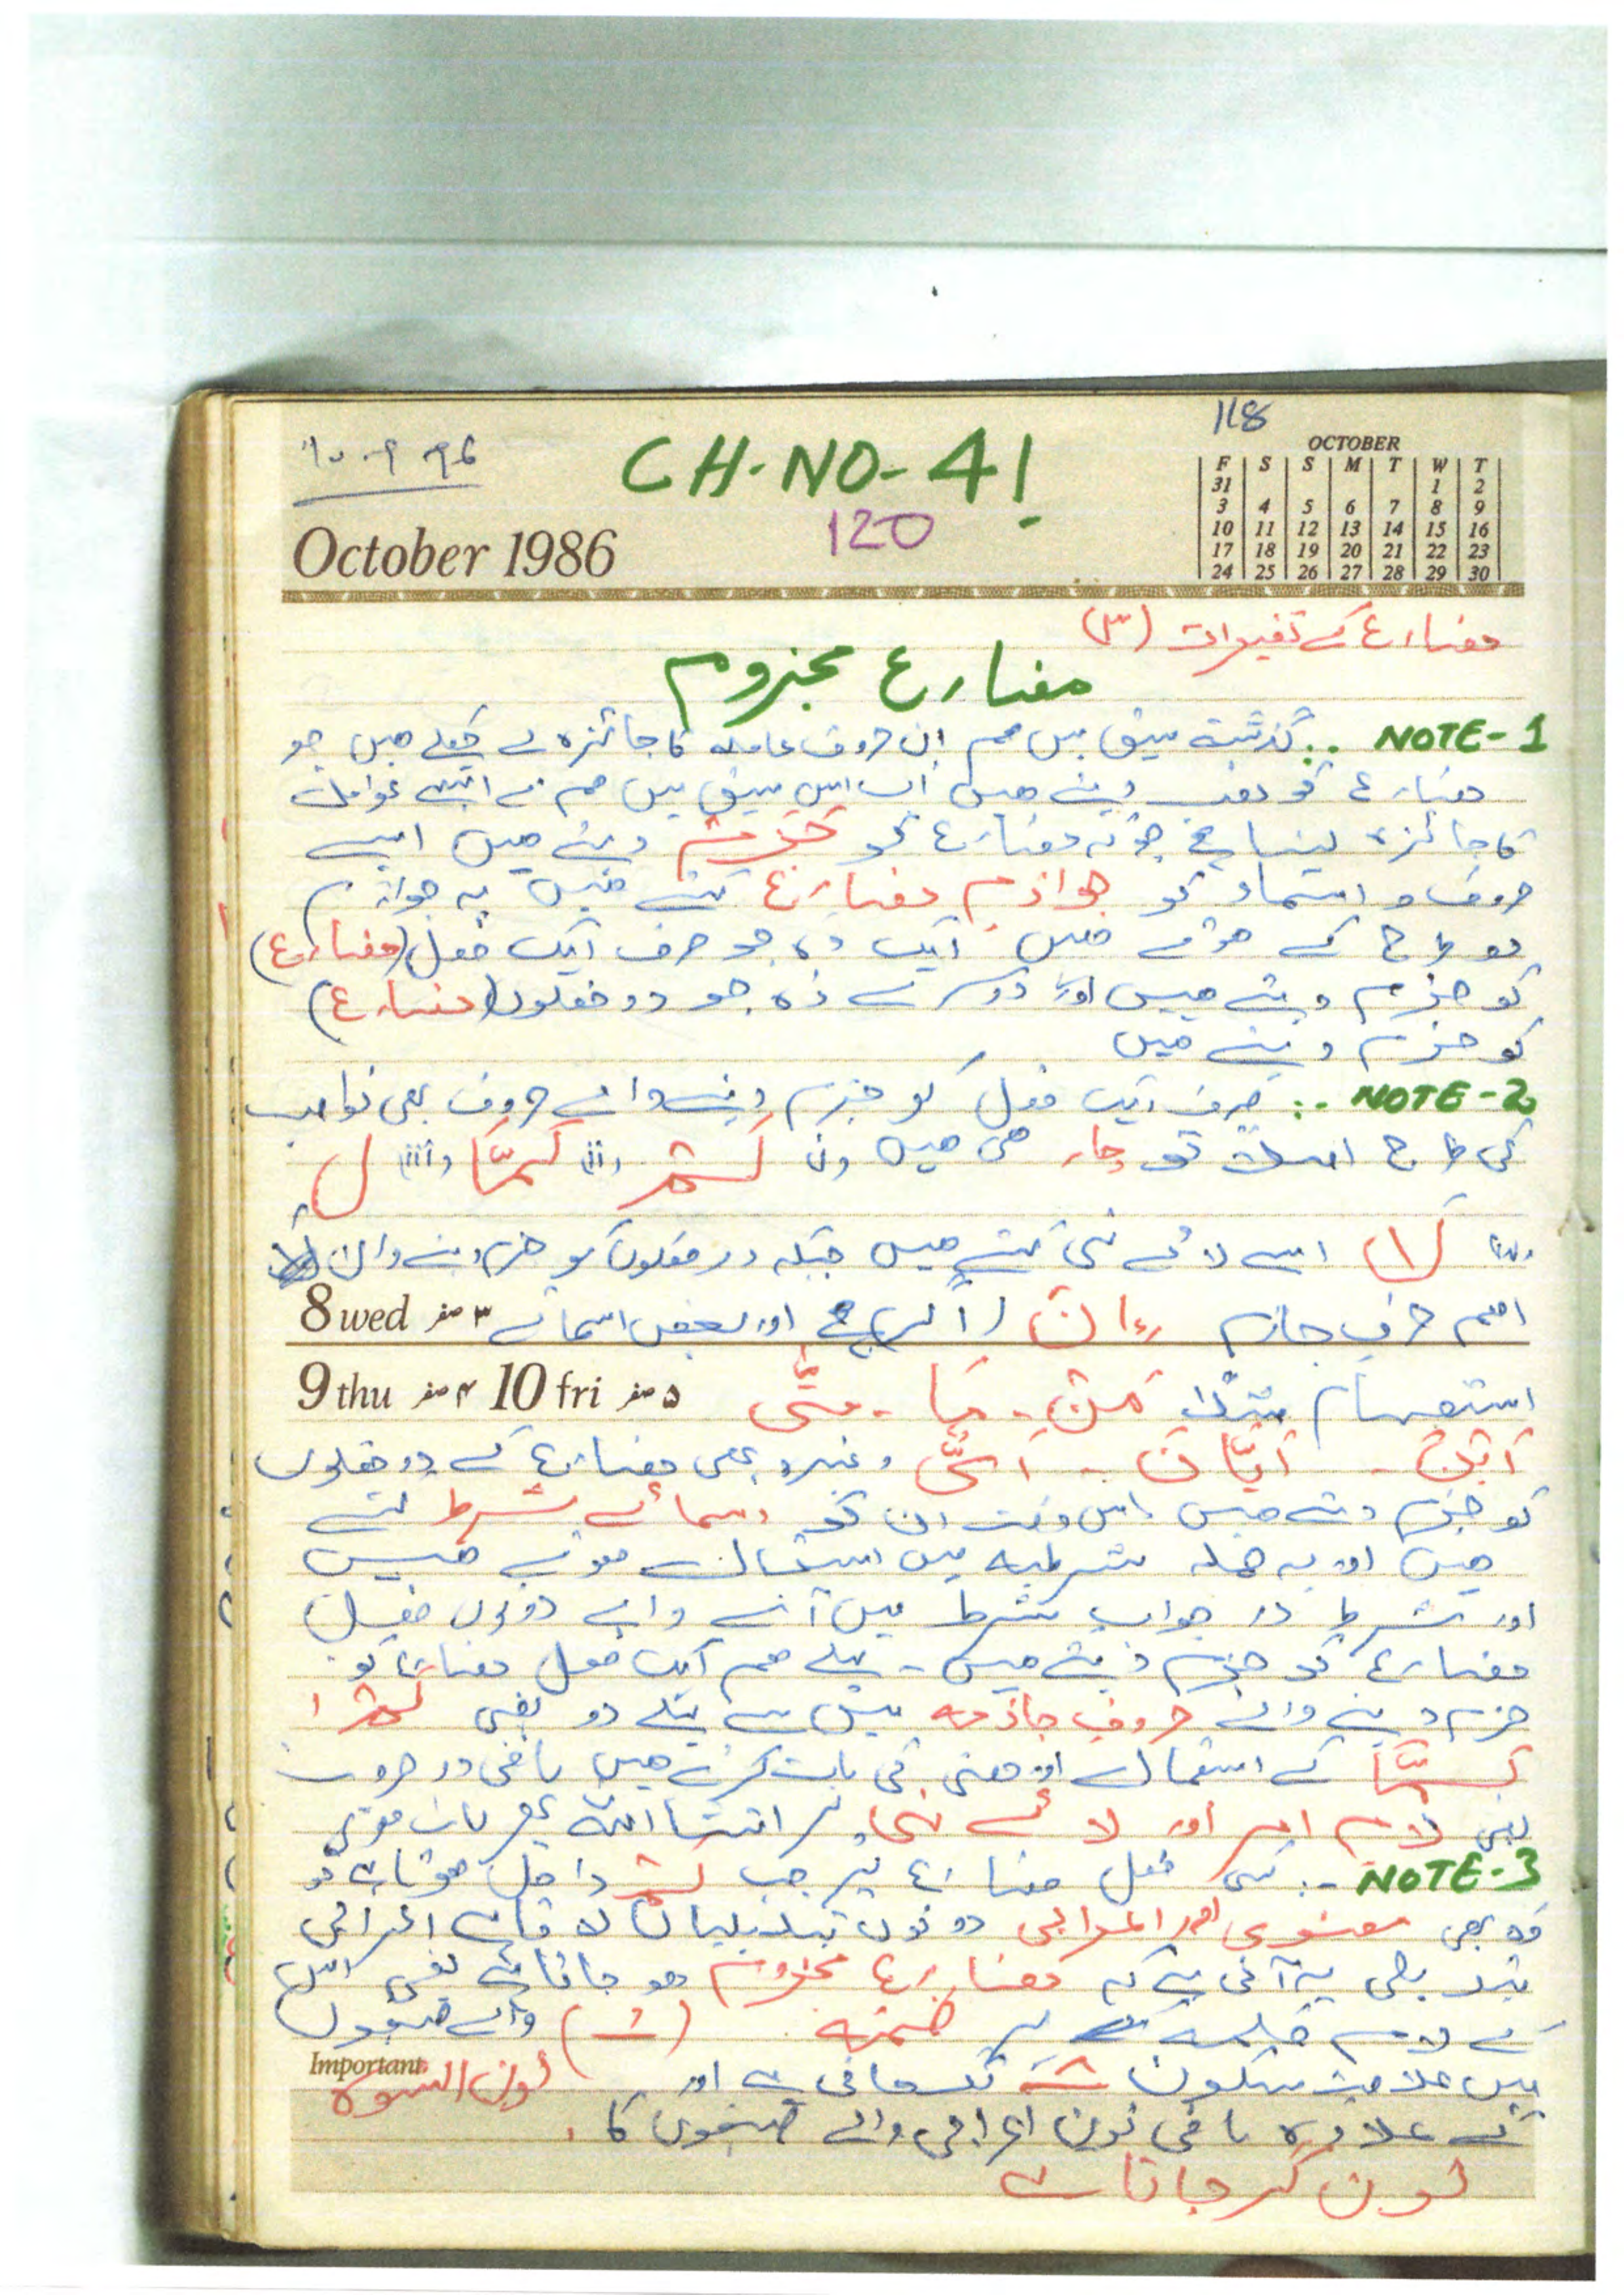 118
CH-NO-41
120
October 1986
OCTOBER
F S S M T W T
31 1 2
3 4 5 6 7 8 9
10 11 12 13 14 15 16
17 18 19 20 21 22 23
24 25 26 27 28 29 30
مضارع کے تغیرات (۳)
مضارع مجزوم
NOTE-1 :۔ گذشتہ سبق میں ہم ان حروف عاملہ کا جائزہ لے چکے ہیں جو
مضارع کو نصب دیتے ہیں اب اس سبق میں ہم نے ایسے عوامل
کا جائزہ لینا ہے جو کہ مضارع کو جزم دیتے ہیں ایسے
حروف و اسماء کو جوازم مضارع کہتے ہیں یہ جوازم
دو طرح کے ہوتے ہیں ایک وہ جو صرف ایک فعل (مضارع)
کو جزم دیتے ہیں اور دوسرے وہ جو دو فعلوں (مضارع)
کو جزم دیتے ہیں
NOTE-2 :۔ صرف ایک فعل کو جزم دینے والے حروف بھی نواصب
کی طرح اصلاً تو چار ہی ہیں (i) لَمْ (ii) لَمَّا (iii) لِ
(iv) لَا اسے لائے نہی کہتے ہیں جبکہ دو فعلوں کو جزم دینے والا
اہم حرف جازم اِنْ (اگر) ہے اور بعض اسمائے
8 wed ۳ صفر
9 thu ۴ صفر 10 fri ۵ صفر
استفہام مثلاً مَنْ - مَا - مَتٰی
اَیْنَ - اَیَّانَ - اَنّٰی وغیرہ بھی مضارع کے دو فعلوں
کو جزم دیتے ہیں اس وقت ان کو اسمائے شرط کہتے
ہیں اور یہ جملہ شرطیہ میں استعمال ہوتے ہیں
اور شرط اور جواب شرط میں آنے والے دونوں فعل
مضارع کو جزم دیتے ہیں - پہلے ہم ایک فعل مضارع کو
جزم دینے والے حروف جازمہ میں سے پہلے دو یعنی لَمْ ا
لَمَّا کے استعمال اور معنی کی بات کرتے ہیں باقی دو حروف
یعنی لام امر اور لائے نہی پر انشاءاللہ پھر بات ہوگی
NOTE-3 :۔ کسی فعل مضارع پر جب لَمْ داخل ہوتا ہے تو
وہ بھی معنوی اور اعرابی دونوں تبدیلیاں لاتا ہے اعرابی
تبدیلی یہ آتی ہے کہ مضارع مجزوم ہو جاتا ہے یعنی اس
کے لام کلمہ پر ضمہ (ـُ) والے صیغوں
میں علامت سکون لگ جاتی ہے اور نون النسوہ
Important
کے علاوہ باقی نون اعرابی والے صیغوں کا
نون گر جاتا ہے